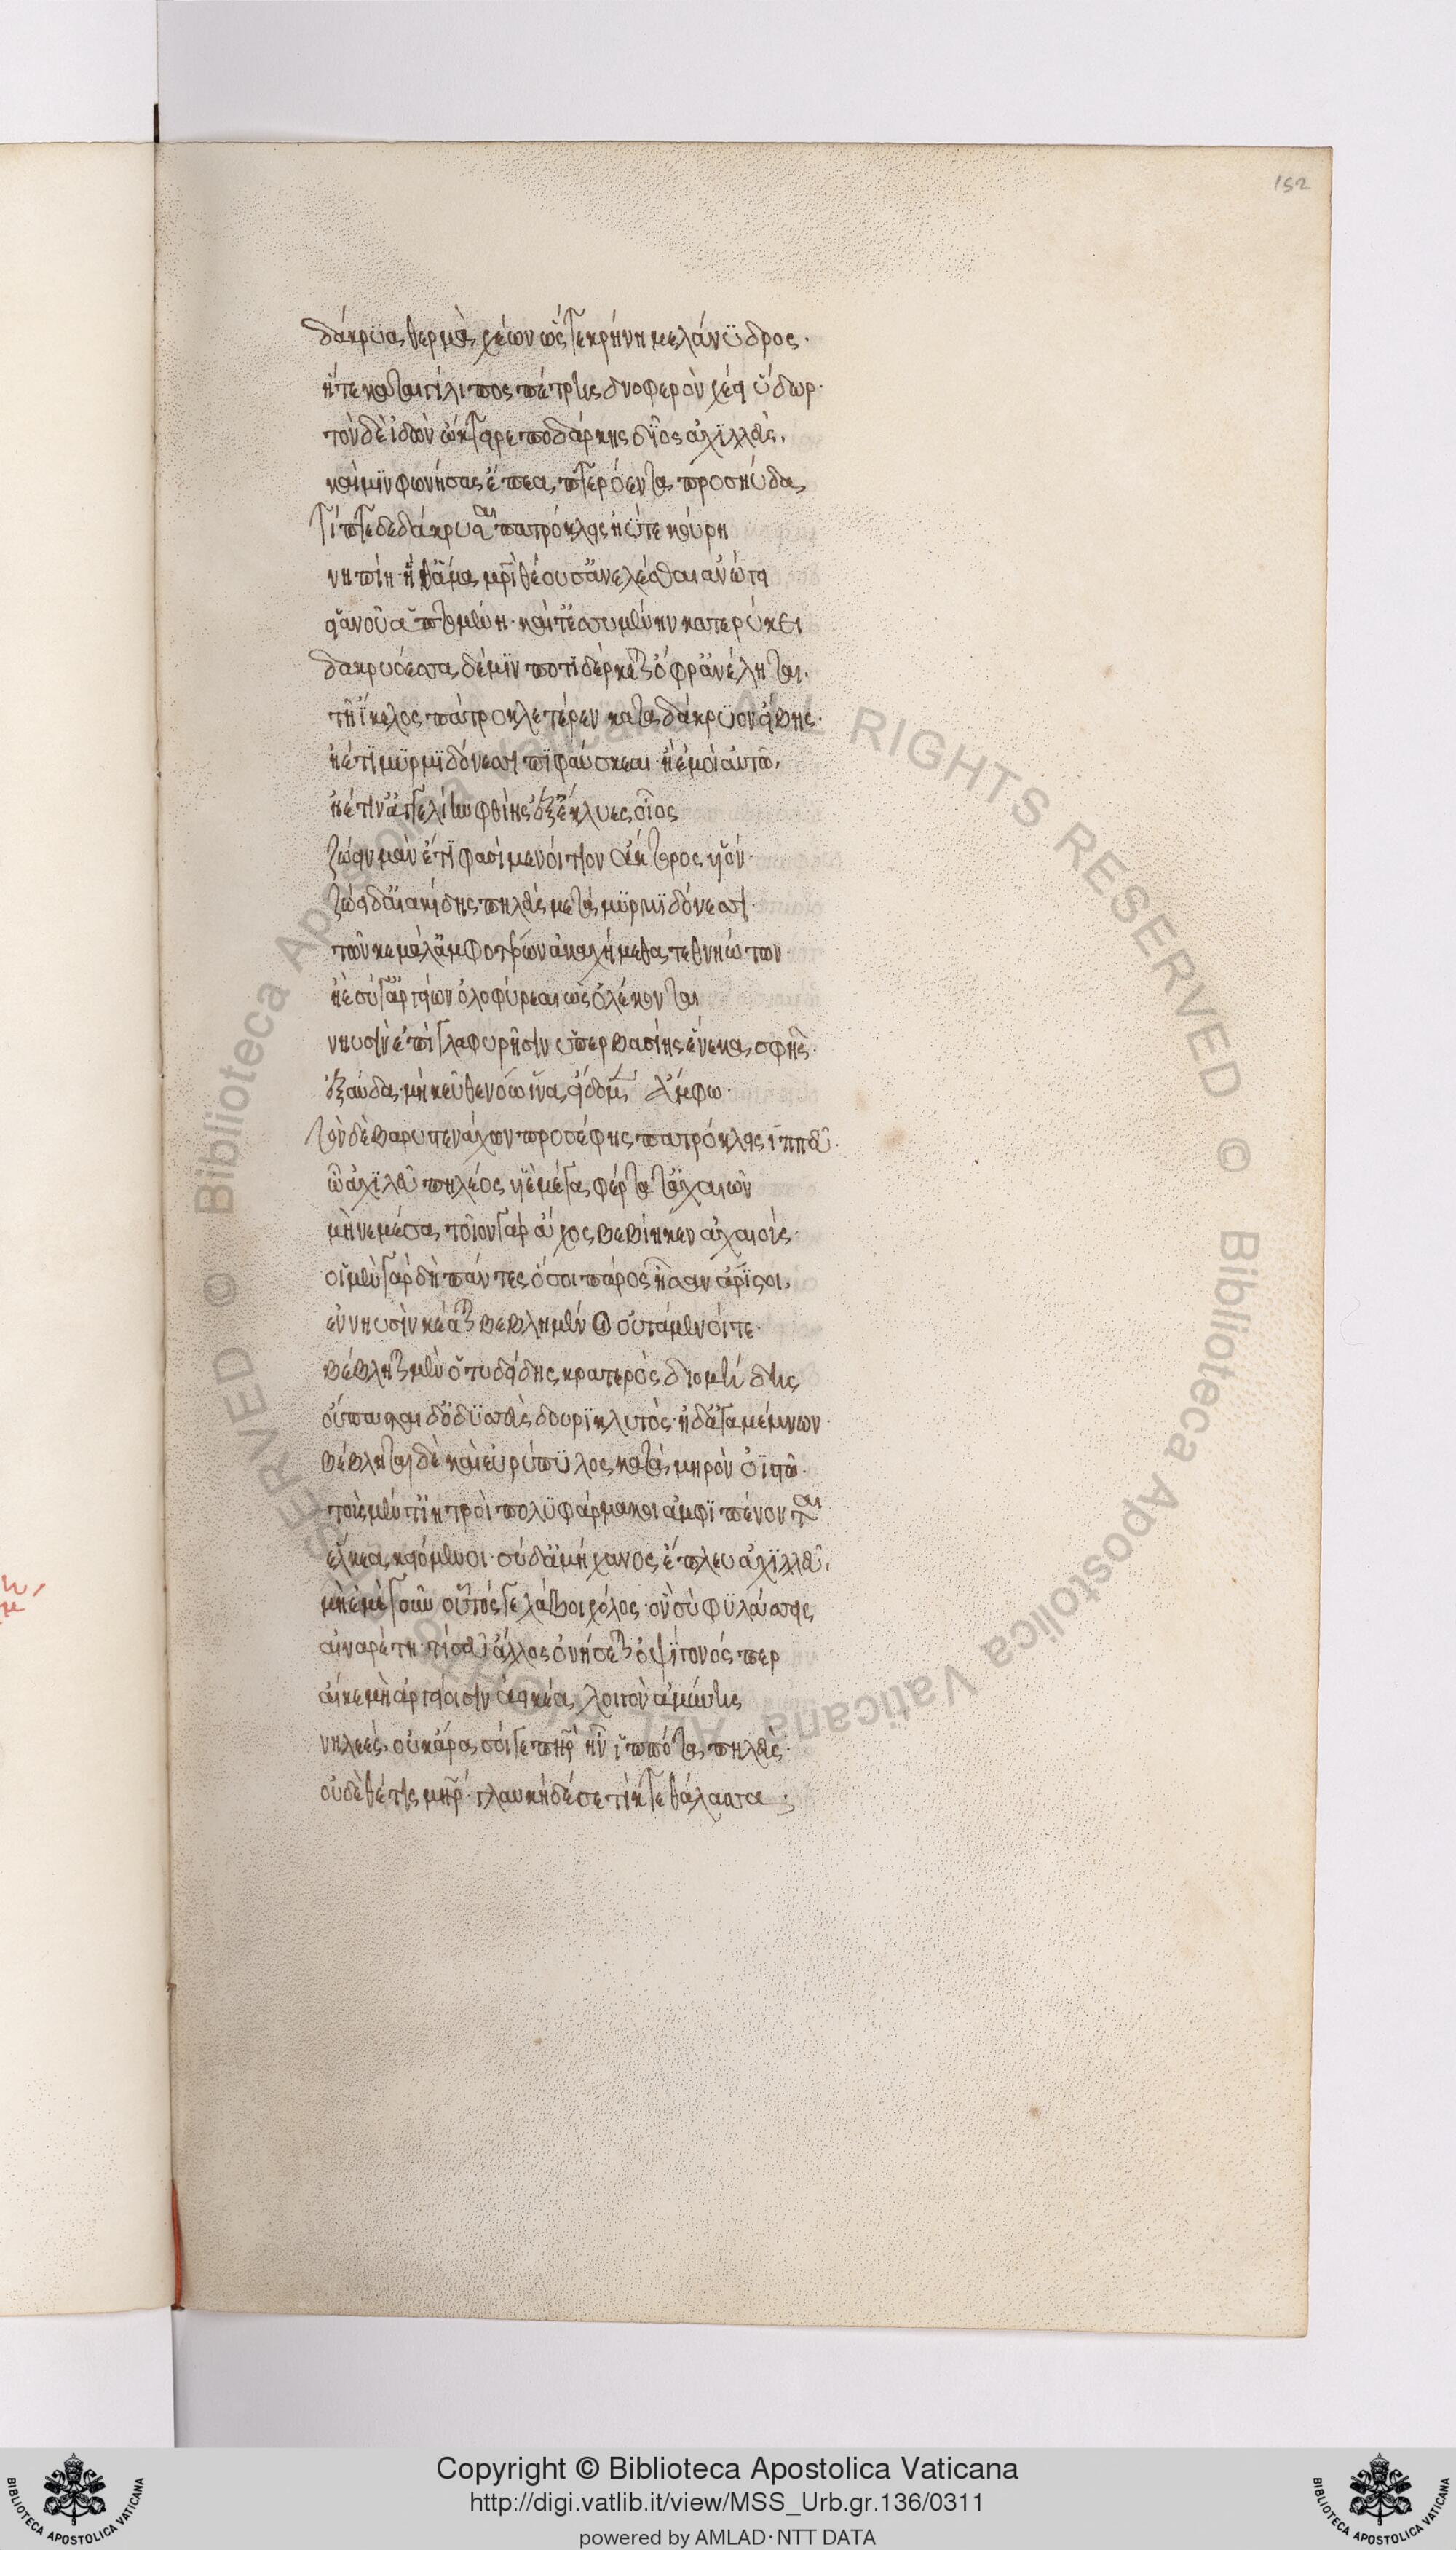 152
δάκρϋα θερμὰ χέων ὥς τε κρήνη μελάνϋδρος·
ἥτε κατ' αιγίλιπος πέτρης δνοφερὸν χέει ὕδωρ·
τὸν δὲ ἰδὼν ὤκτειρε ποδάρκης δῖος ἀχιλλεὺς,
καὶ μϊν φωνήσας ἔπεα πτερόεντα προσηύδα,
τίπτε δεδάκρυσαι πατρόκλεις ἠΰτε κούρη
νηπίη· ἥ θ' ἅμα μητρὶ θέουσ' ἀνελέσθαι ἀνώγει
εἱανοῦ ἁπτομένη· καί τ' ἐσσυμένην κατερύκει
δακρυόεσσα δέ μϊν ποτιδέρκεται ὄφρ' ἀνέληται.
τῇ ἴκελος πάτροκλε τέρεν κατὰ δάκρϋον εἴβεις·
ἠέ τι μϋρμϊδόνεσσι πιφαύσκεαι· ἢ ἐμοὶ αὐτῷ,
ἠέ τιν' ἀγγελίην φθίης ἐξέκλυες οἶος
ζώειν μὰν ἔτι φασὶ μενοίτιον ἄκτορος υἱόν·
ζώει δ' αἰακίδης πηλεὺς μετὰ μϋρμϊδόνεσσι·
τῶν κε μάλ' ἀμφοτέρων ἀκαχήμεθα τεθνηώτων·
ἠὲ σύ γ' ἀργείων ὀλοφύρεαι ὡς ὀλέκονται
νηυσὶν ἐπὶ γλαφυρῇσιν ὑπερβασίης ἕνεκα σφῆς·
ἐξαύδα· μὴ κεῦθε νόῳ ἵνα εἴδομεν ἄμφω·
τὸν δὲ βαρυστενάχων προσέφης πατρόκλεις ἱππεῦ·
ὦ ἀχϊλεῦ πηλέος υἱὲ μέγα φέρτατ' ἀχαιῶν
μὴ νεμέσα, τοῖον γὰρ ἄχος βεβίηκεν ἀχαιούς·
οἱ μὲν γὰρ δὴ πάντες ὅσοι πάρος ἦσαν ἄριστοι,
ἐν νηυσὶν κέαται βεβλημένοι οὐτάμενοί τε·
βέβληται μὲν ὁ τυδείδης κρατερὸς διομήδης
οὔτασται δ' ὀδϋσσεὺς δουρϊκλυτὸς· ἠδ' ἀγαμέμνων·
βέβληται δὲ καὶ εὐρύπϋλος κατὰ μηρὸν ὀϊστῷ·
τοὺς μέν τ' ἰητροὶ πολϋφάρμακοι ἀμφϊπένονται
ἕλκεα κειόμενοι· σύ δ' ἀμήχανος ἔπλευ ἀχϊλλεῦ,
μὴ ἐμὲ γοῦν οὗτός γε λάβοι χόλος· ὃν σὺ φϋλάσσεις
αἰναρέτη· τί σευ ἄλλος ὀνήσεται ὀψίγονός περ
αἴ κε μὴ ἀργείοισιν ἀεικέα λοιγὸν ἀμύνῃς
νηλεές· οὐκ ἄρα σοί γε πατὴρ ἦν ἱππότα πηλεὺς·
οὐδὲ θέτις μήτηρ· γλαυκὴ δέ σε τίκτε θάλασσα·
Copyright © Biblioteca Apostolica Vaticana
http://digi.vatlib.it/view/MSS_Urb.gr.136/0311
powered by AMLAD·NTT DATA